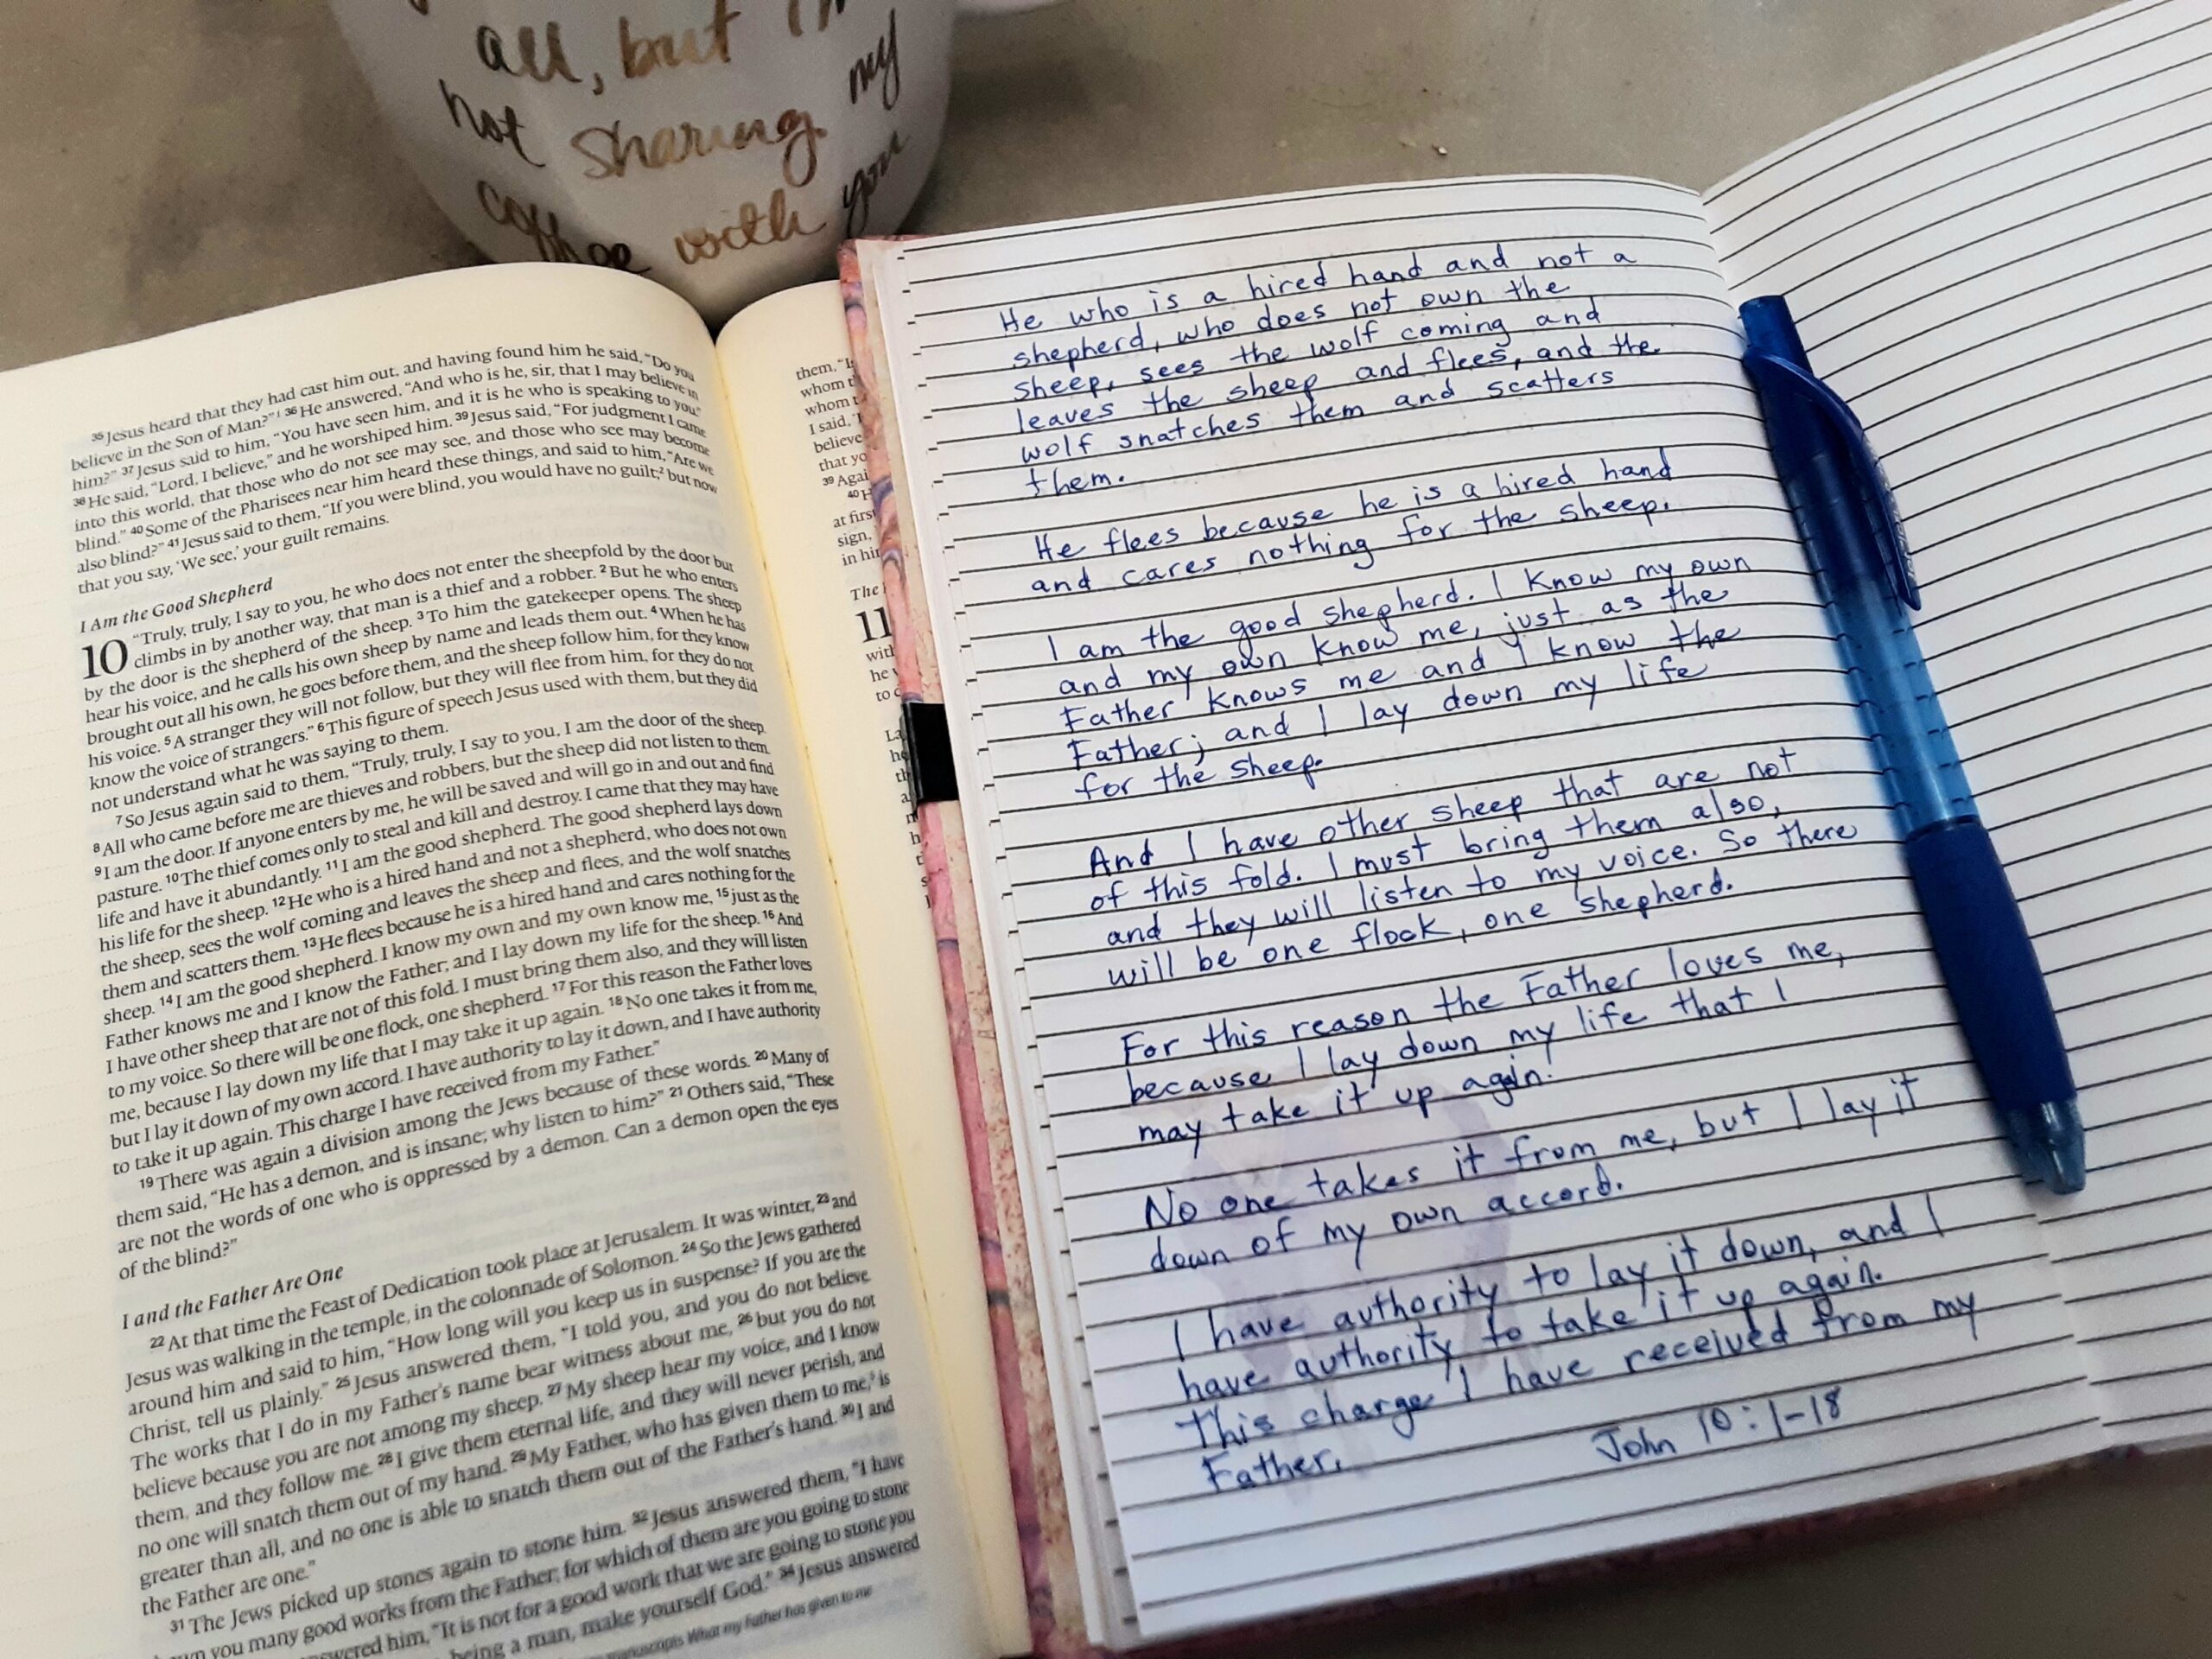 all, but I'm
not sharing my
coffee with you
35 Jesus heard that they had cast him out, and having found him he said, “Do you
believe in the Son of Man?”1 36 He answered, “And who is he, sir, that I may believe in
him?” 37 Jesus said to him, “You have seen him, and it is he who is speaking to you.”
38 He said, “Lord, I believe,” and he worshiped him. 39 Jesus said, “For judgment I came
into this world, that those who do not see may see, and those who see may become
blind.” 40 Some of the Pharisees near him heard these things, and said to him, “Are we
also blind?” 41 Jesus said to them, “If you were blind, you would have no guilt;2 but now
that you say, ‘We see,’ your guilt remains.
I Am the Good Shepherd
10 “Truly, truly, I say to you, he who does not enter the sheepfold by the door but
climbs in by another way, that man is a thief and a robber. 2 But he who enters
by the door is the shepherd of the sheep. 3 To him the gatekeeper opens. The sheep
hear his voice, and he calls his own sheep by name and leads them out. 4 When he has
brought out all his own, he goes before them, and the sheep follow him, for they know
his voice. 5 A stranger they will not follow, but they will flee from him, for they do not
know the voice of strangers.” 6 This figure of speech Jesus used with them, but they did
not understand what he was saying to them.
7 So Jesus again said to them, “Truly, truly, I say to you, I am the door of the sheep.
8 All who came before me are thieves and robbers, but the sheep did not listen to them.
9 I am the door. If anyone enters by me, he will be saved and will go in and out and find
pasture. 10 The thief comes only to steal and kill and destroy. I came that they may have
life and have it abundantly. 11 I am the good shepherd. The good shepherd lays down
his life for the sheep. 12 He who is a hired hand and not a shepherd, who does not own
the sheep, sees the wolf coming and leaves the sheep and flees, and the wolf snatches
them and scatters them. 13 He flees because he is a hired hand and cares nothing for the
sheep. 14 I am the good shepherd. I know my own and my own know me, 15 just as the
Father knows me and I know the Father; and I lay down my life for the sheep. 16 And
I have other sheep that are not of this fold. I must bring them also, and they will listen
to my voice. So there will be one flock, one shepherd. 17 For this reason the Father loves
me, because I lay down my life that I may take it up again. 18 No one takes it from me,
but I lay it down of my own accord. I have authority to lay it down, and I have authority
to take it up again. This charge I have received from my Father.”
19 There was again a division among the Jews because of these words. 20 Many of
them said, “He has a demon, and is insane; why listen to him?” 21 Others said, “These
are not the words of one who is oppressed by a demon. Can a demon open the eyes
of the blind?”
I and the Father Are One
22 At that time the Feast of Dedication took place at Jerusalem. It was winter, 23 and
Jesus was walking in the temple, in the colonnade of Solomon. 24 So the Jews gathered
around him and said to him, “How long will you keep us in suspense? If you are the
Christ, tell us plainly.” 25 Jesus answered them, “I told you, and you do not believe.
The works that I do in my Father’s name bear witness about me, 26 but you do not
believe because you are not among my sheep. 27 My sheep hear my voice, and I know
them, and they follow me. 28 I give them eternal life, and they will never perish, and
no one will snatch them out of my hand. 29 My Father, who has given them to me,3 is
greater than all, and no one is able to snatch them out of the Father’s hand. 30 I and
the Father are one.”
31 The Jews picked up stones again to stone him. 32 Jesus answered them, “I have
you many good works from the Father; for which of them are you going to stone
answered him, “It is not for a good work that we are going to stone you
being a man, make yourself God.” 34 Jesus answered
manuscripts What my Father has given to me
them, “I
whom
whom
I said,
believe
that yo
39 Agai
40 H
at first
sign,
in hi
The
11
wit
he
to
He who is a hired hand and not a
shepherd, who does not own the
sheep, sees the wolf coming and
leaves the sheep and flees, and the
wolf snatches them and scatters
them.
He flees because he is a hired hand
and cares nothing for the sheep.
I am the good shepherd. I know my own
and my own know me, just as the
Father knows me and I know the
Father; and I lay down my life
for the sheep.
And I have other sheep that are not
of this fold. I must bring them also,
and they will listen to my voice. So there
will be one flock, one shepherd.
For this reason the Father loves me,
because I lay down my life that I
may take it up again.
No one takes it from me, but I lay it
down of my own accord.
I have authority to lay it down, and I
have authority to take it up again.
This charge I have received from my
Father.
John 10:1-18